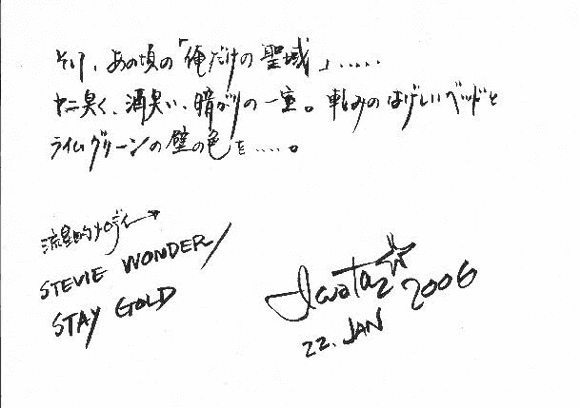 そう、あの頃の「俺だけの聖域」.....
ヤニ臭く、酒臭い、暗がりの一室。軋みのはげしいベッドと
ライムグリーンの壁の色を.....。
流星的メロディー→
STEVIE WONDER/
STAY GOLD
2006
22.JAN